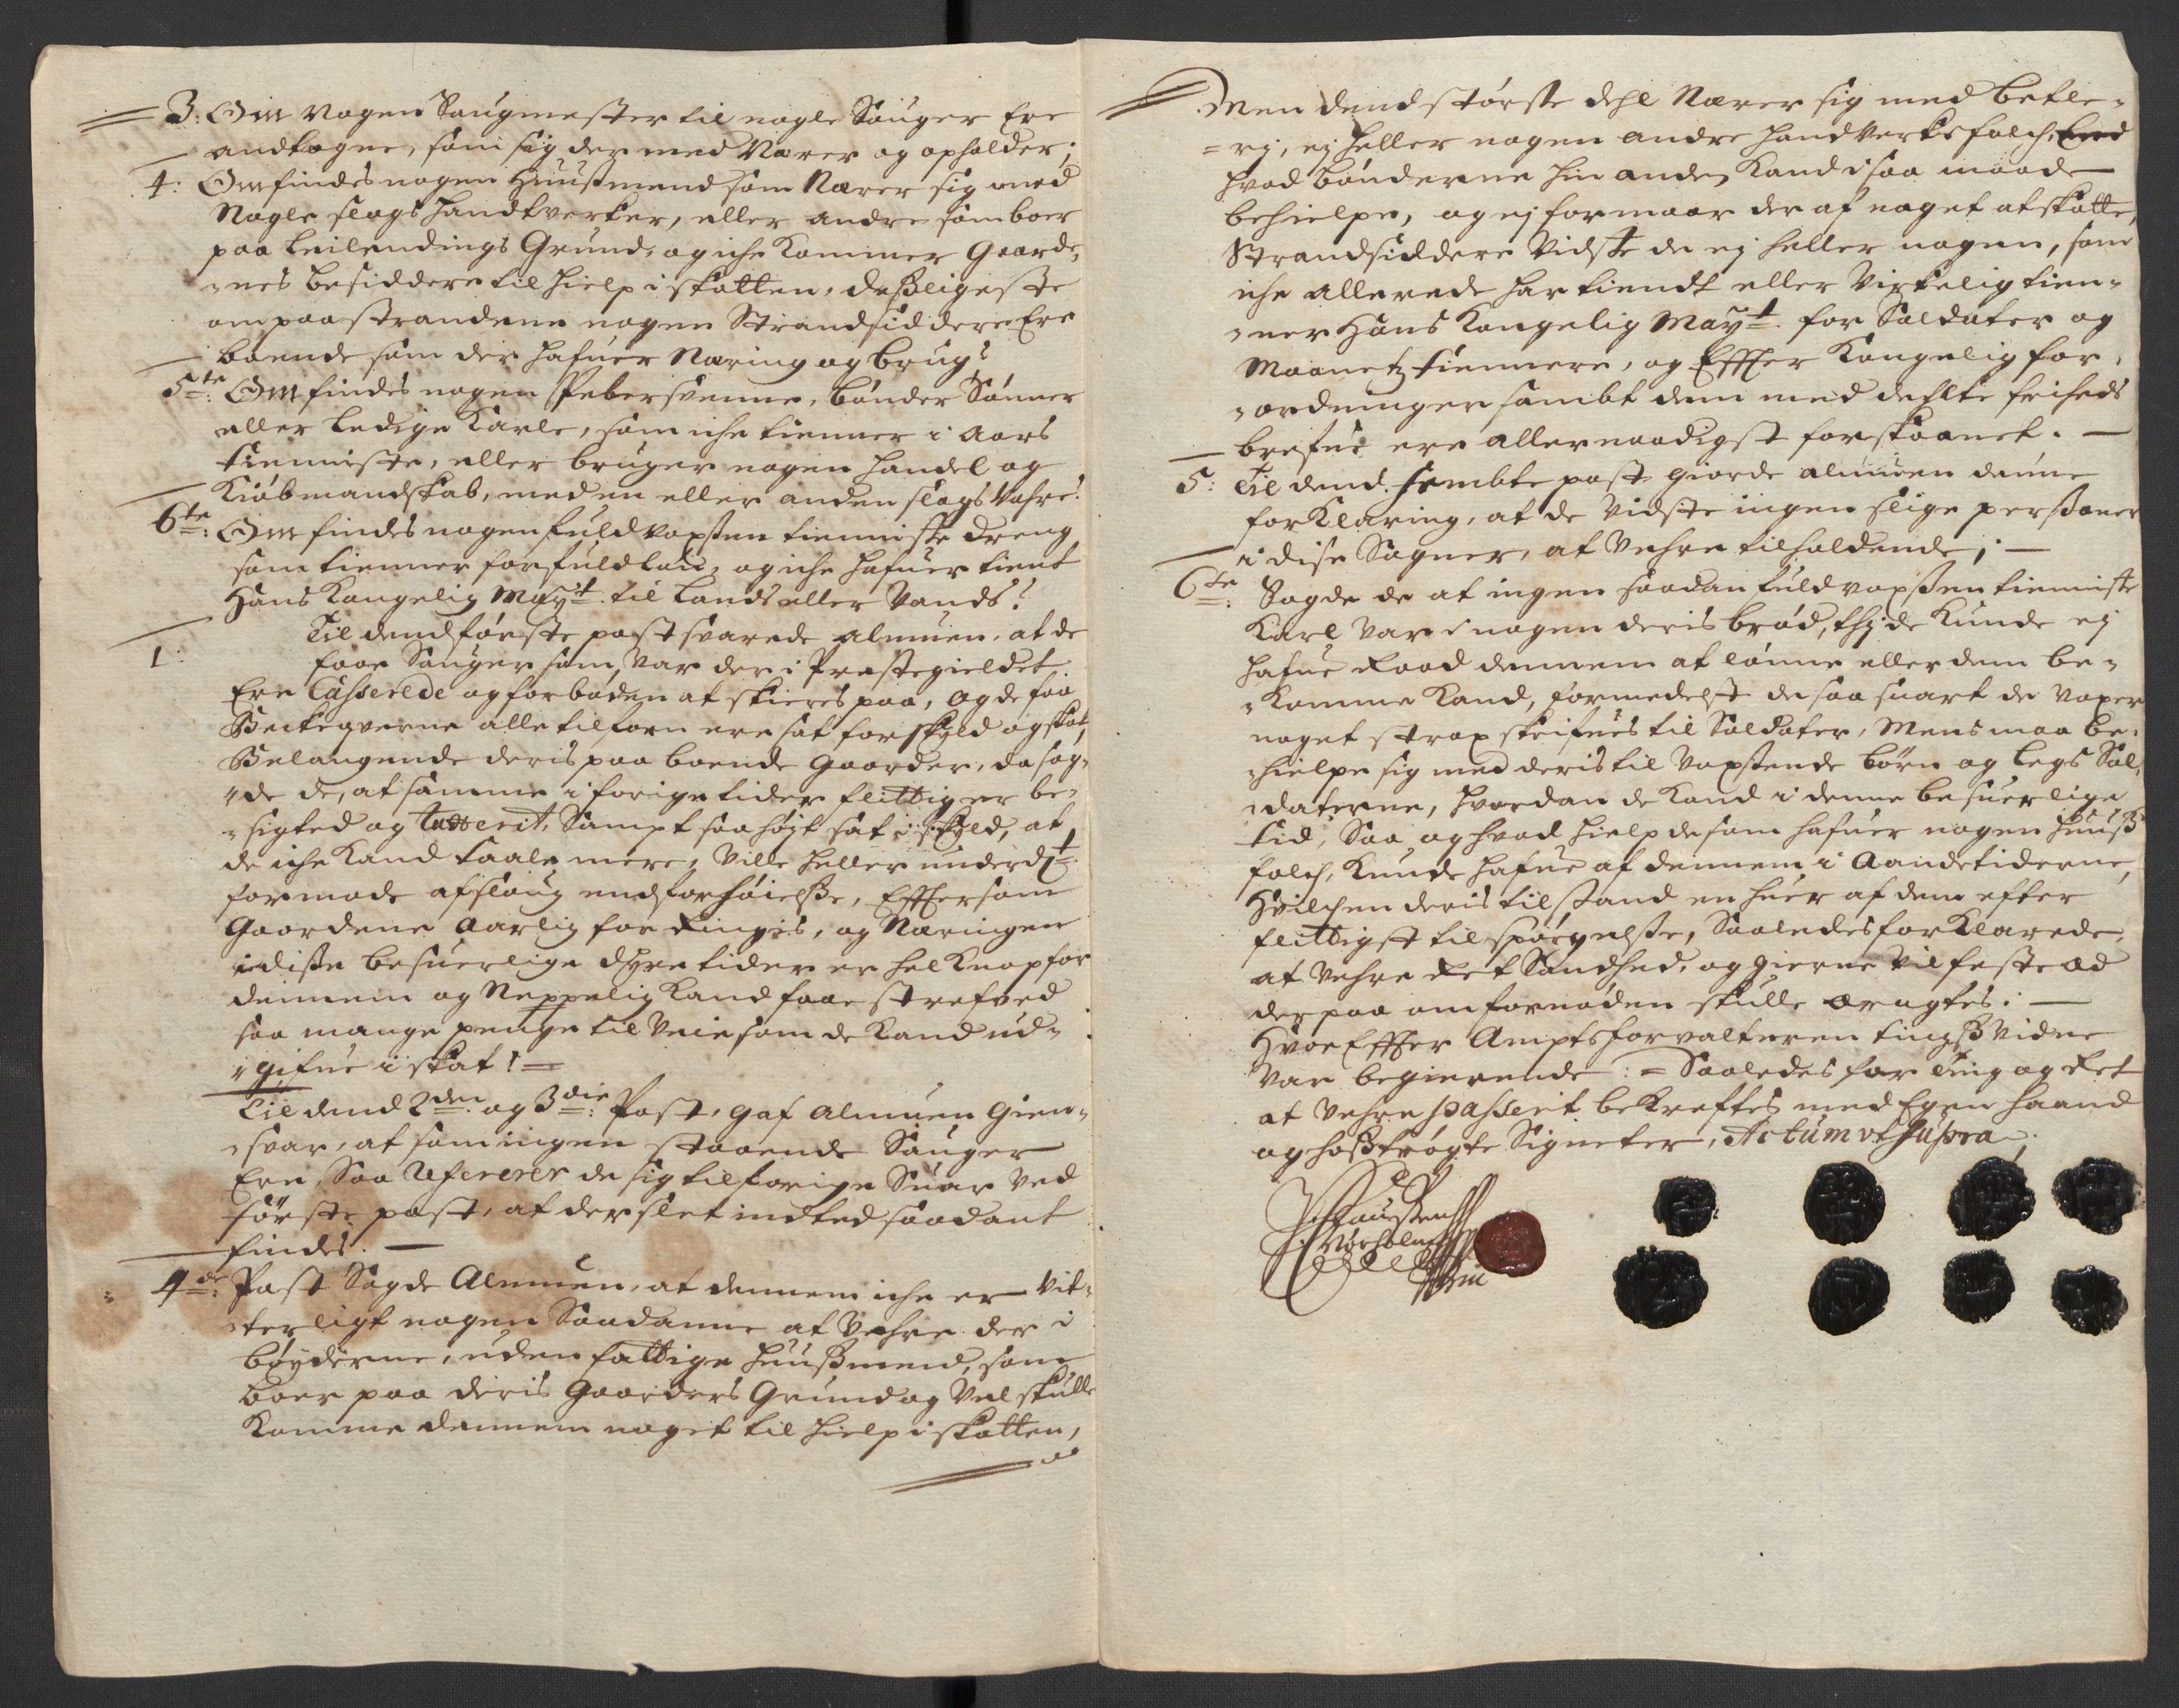 3: Om Nogen Saugmester til nogle Sauger Ere
andtagne, som sig der med Nærer og opholder;
4: Om findes nogen Huusmend som Nærer sig med
Nogle slags handtverker, eller andre som boer
paa Leilendings Grund, og iche Kommer Gaarde,,
,,nes besiddere til hielp i skatten, desligeste
om paa strandene nogen Strandsiddere Ere
boende som der hafuer Næring og brug?
5te: Om findes nogen Pebersvenne, bønder Sønner
eller Ledige Karle, som iche tienner i Aars
tienneste, eller bruger nogen handel og
Kiøbmandskab, med en eller anden slags Vahre:
6te: Om findes nogen fuldvoxsen tienneste dreng
som tienner for fuld løn, og iche hafuer tient
Hans Kongelig Mayt. til Lands eller Vands?
1: Til dend første post svarede almuen, at de
faae Sauger som var der i Præstegieldet
Ere Casserede og forbøden at skieres paa, og de faa
Becheqverne alle tilforn ere sat for skyld og skat,
Belangende deris paa boende Gaarder, da sag,,
,,de de, at samme i forige tider flittig er be,,
,,sigted og taxserit, Sampt saa højt sat i skyld, at
de iche Kand taale mere, Ville heller underdt.
formode afslaug end forhøielse, Effter som
Gaardene Aarlig for Ringis, og Næringen
i disse besuerlige dyre tider er hel Knap for
dennem og Neppelig Kand faae strefved
saa mange penge til Veie som de Kand ud,,
,,gifue i skat!
Til dend 2den og 3die: Post, gaf almuen Gien,,
,,svar, at som ingen staaende Sauger
Ere, Saa Refererer de sig til forige Suar Ved
første post, at der slet indted saadant
findes.
4de: Post Sagde Almuen, at dennem iche er Vit,,
,,terligt nogen Saadanne at Vehre der i
bøyderne, uden fattige huusmend, som
boer paa deris Gaarders Grund og Vel skulle
Komme dennem noget til hielp i skatten,
Men dend største dehl Nærer sig med betle,,
,,rj, ej heller nogen andre handverksfolch, End
hvad bønderne hin anden Kand i saa maade
behielpe, og ej formaar der af noget at skatte,
Strandsiddere Vidste de ej heller nogen, som
iche allerede har tiendt eller Virkelig tien,,
,,ner Hans Kongelig Mayt. for Soldater og
Maanetz tiennere, og Effter Kongelig for,,
,,ordninger sambt dem med deelte friheds
brefue ere allernaadigst forskaanet.
5: Til dend fembte post giorde almuen denne
forklaring, at de Vidste ingen slige personer
i disse Sogner, at Vehre tilholdende;
6te: Sagde de at ingen saadan fuldvoxsen tienniste
Karl Var i nogen deris brød, thj de Kunde ej
hafue Raad dennem at lønne eller dem be,,
,,Komme Kand, formedelst de saa snart de Voxer
noget strax skrifues til Soldater, Mens maa be,,
,,hielpe sig med deris til Voxsende børn og Legs Sol,,
,,daterne, hvordan de Kand i denne besuerlige
tid, Saa og hvad hielp de som hafuer nogen huus
folch, Kunde hafue af dennem i Aandetiderne,
Hvilchen deris tilstand en huer af dem efter
flittigst tilspørgelse, Saaledes forklarede,
at Vehre Ret Sandhed, og gierne Vil feste Æd
der paa om fornøden skulle eragtes:
Hvor Effter Amptsforvalteren tings Vidne
Var begierende: = Saaledes for Ting og Ret
at Vehre passerit bekreftes med Egen haand
og hostrøgte Signeter, Actum ut Supra,